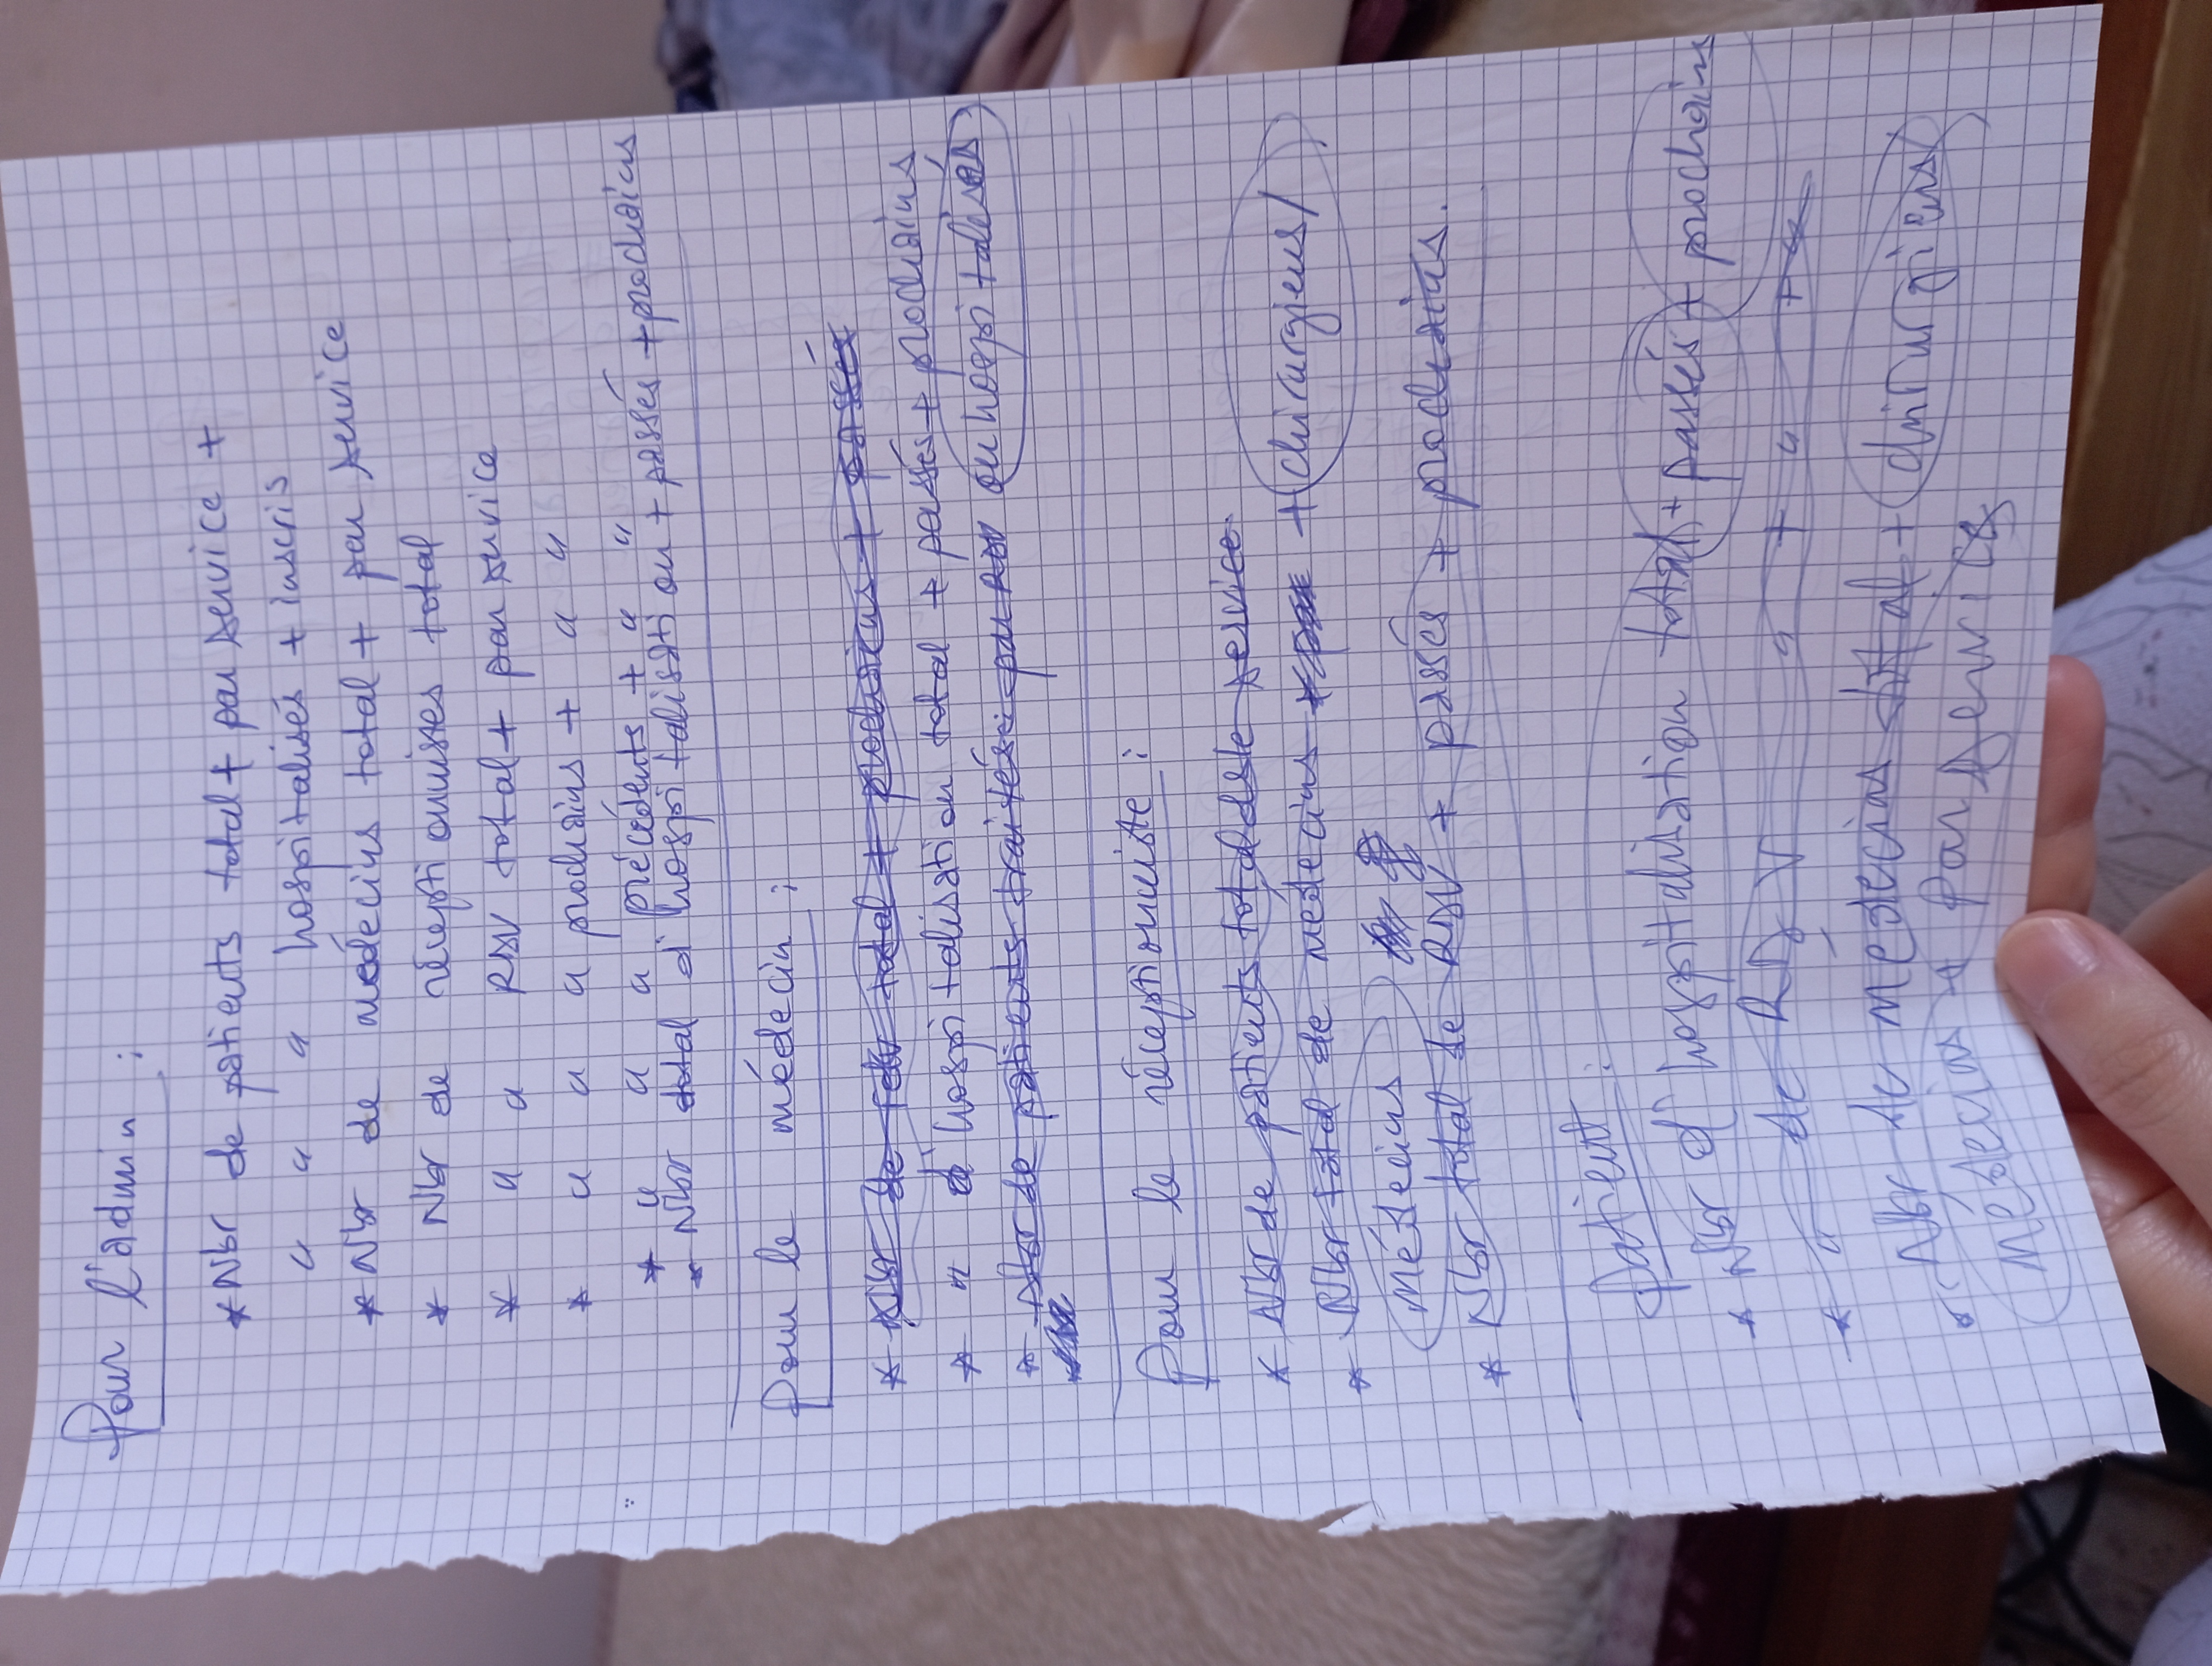 Pour l'admin :
* Nbr de patients total + par service +
" " " hospitalisés + inscris
* Nbr de médecins total + par service
* Nbr de réceptionnistes total
* " " RDV total + par service
* " " " prochains + " "
* " " " précédents + " "
* Nbr total d'hospitalisation + passés + prochains
Pour le médecin :
* Nbr de rdv total + prochains + passés
* " d'hospitalisation total + passés + prochains
* Nbr de patients traités par RDV ou hospitalisés
Pour le réceptionniste :
* Nbr de patients total ds le service.
* Nbr total de médecins + par + chirurgiens/
médecins
* Nbr total de RDV + passés + prochains.
Patient :
* Nbr d'hospitalisation total + passés + prochains
* " de RDV " + " + "
* Nbr de médecins total + chirurgiens/
médecins + par service